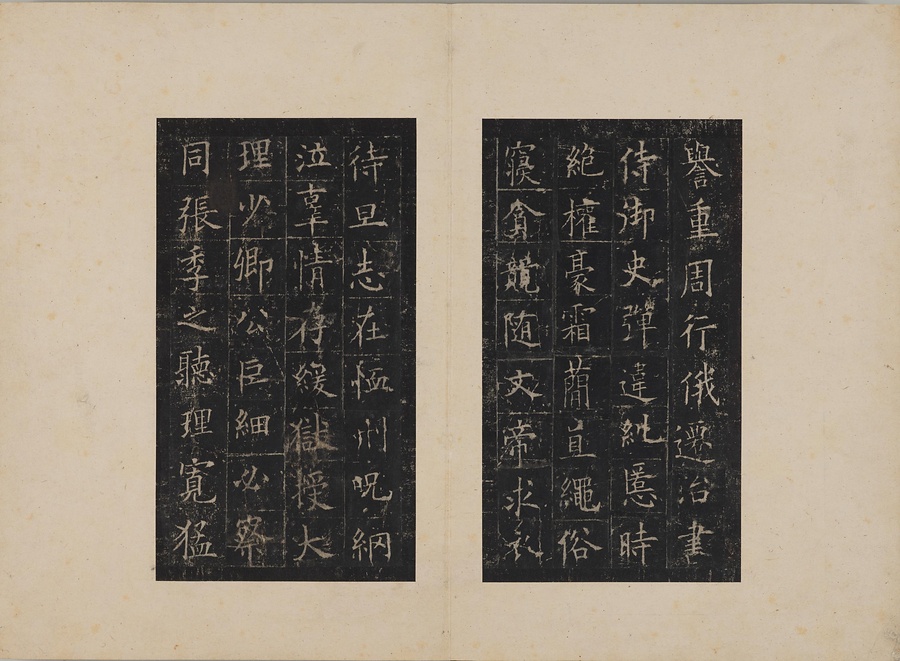 譽重周行俄遷治書
侍御史彈違糺慝時
絶權豪霜簡直繩俗
寢貪競随文帝求衣
待旦志在恤刑呪網
泣辜情存緩獄授大
理少卿公巨細必察
同張季之聽理寬猛